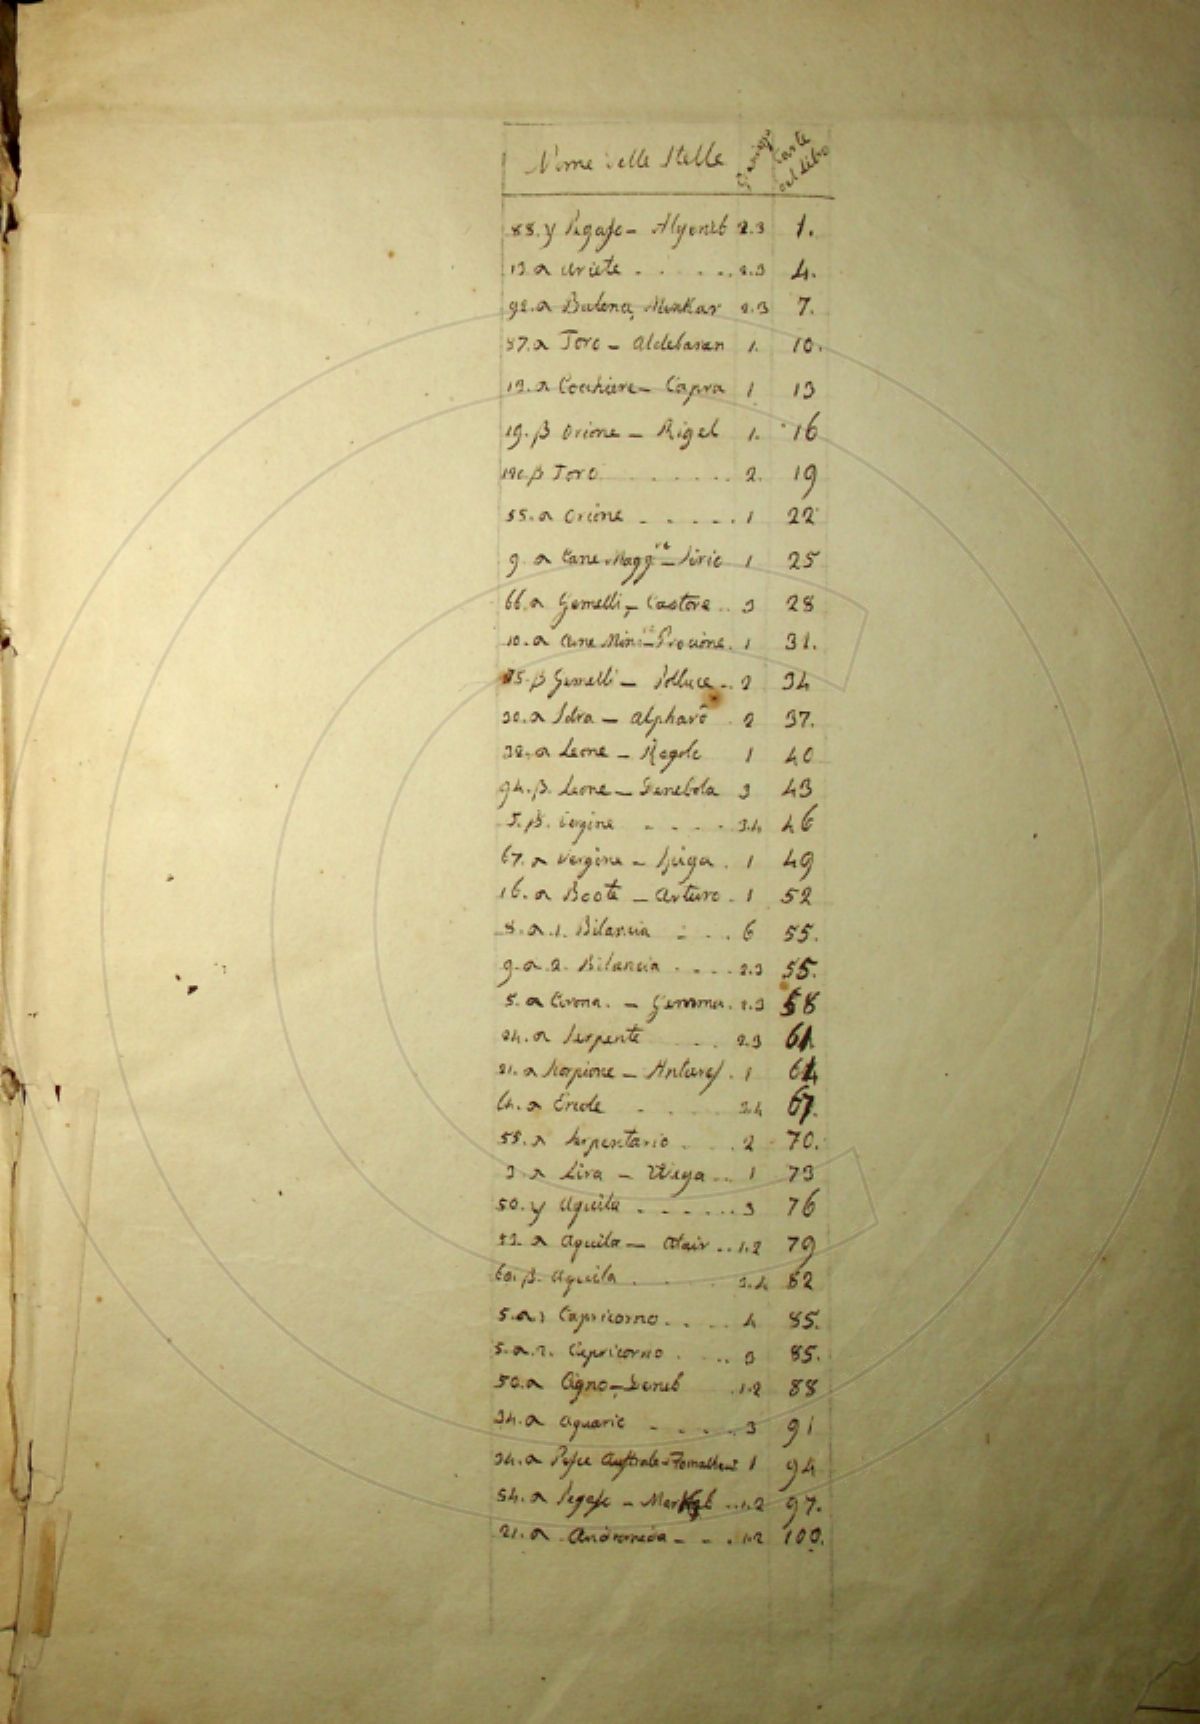 Nome delle Stelle Grandezª Carte del Libro
88. γ Pegaso - Algenib 2.3 1.
13. α Ariete . . . . . . 2.3 4.
92. α Balena, Menkar 2.3 7.
87. α Toro - Aldebaran 1. 10.
13. α Cocchiere - Capra 1 13
19. β Orione - Rigel 1. 16
112. β Toro . . . . . . . 2. 19
58. α Orione . . . . . 1 22
9. α Cane Magg.re - Sirio 1 25
66. α Gemelli - Castore .. 3 28
10. α Cane Min.re - Procione. 1 31.
78. β Gemelli - Polluce .. 2 34
30. α Idra - Alpharð . 2 37.
32. α Leone - Regolo 1 40
94. β. Leone - Denebola 3 43
5. β. Vergine . . . . . 3.4 46
67. α Vergine - Spiga . 1 49
16. α Boote - Arturo . 1 52
8. α. 1. Bilancia . . . 6 55.
9. α. 2. Bilancia . . . . 2.3 55.
5. α Corona. - Gemma. 2.3 58
24. α Serpente . . . 2.3 61
21. α Scorpione - Antares . 1 64
64. α Ercole . . . . 3.4 67.
55. α Serpentario . . . 2 70.
3 α Lira - Wega .. 1 73
50. γ Aquila . . . . . . 3 76
53. α Aquila - Atair .. 1.2 79
60. β. Aquila . . . . 3.4 82
5. α. 1 Capricorno . . . . 4 85.
5. α. 2. Capricorno . . . 3 85.
50. α Cigno - Deneb . 1.2 88
34. α Aquario . . . . . 3 91
24. α Pesce Australe - Fomalhaut 1 94
54. α Pegaso - Markab .. 1.2 97.
21. α Andromeda - - . 1.2 100.